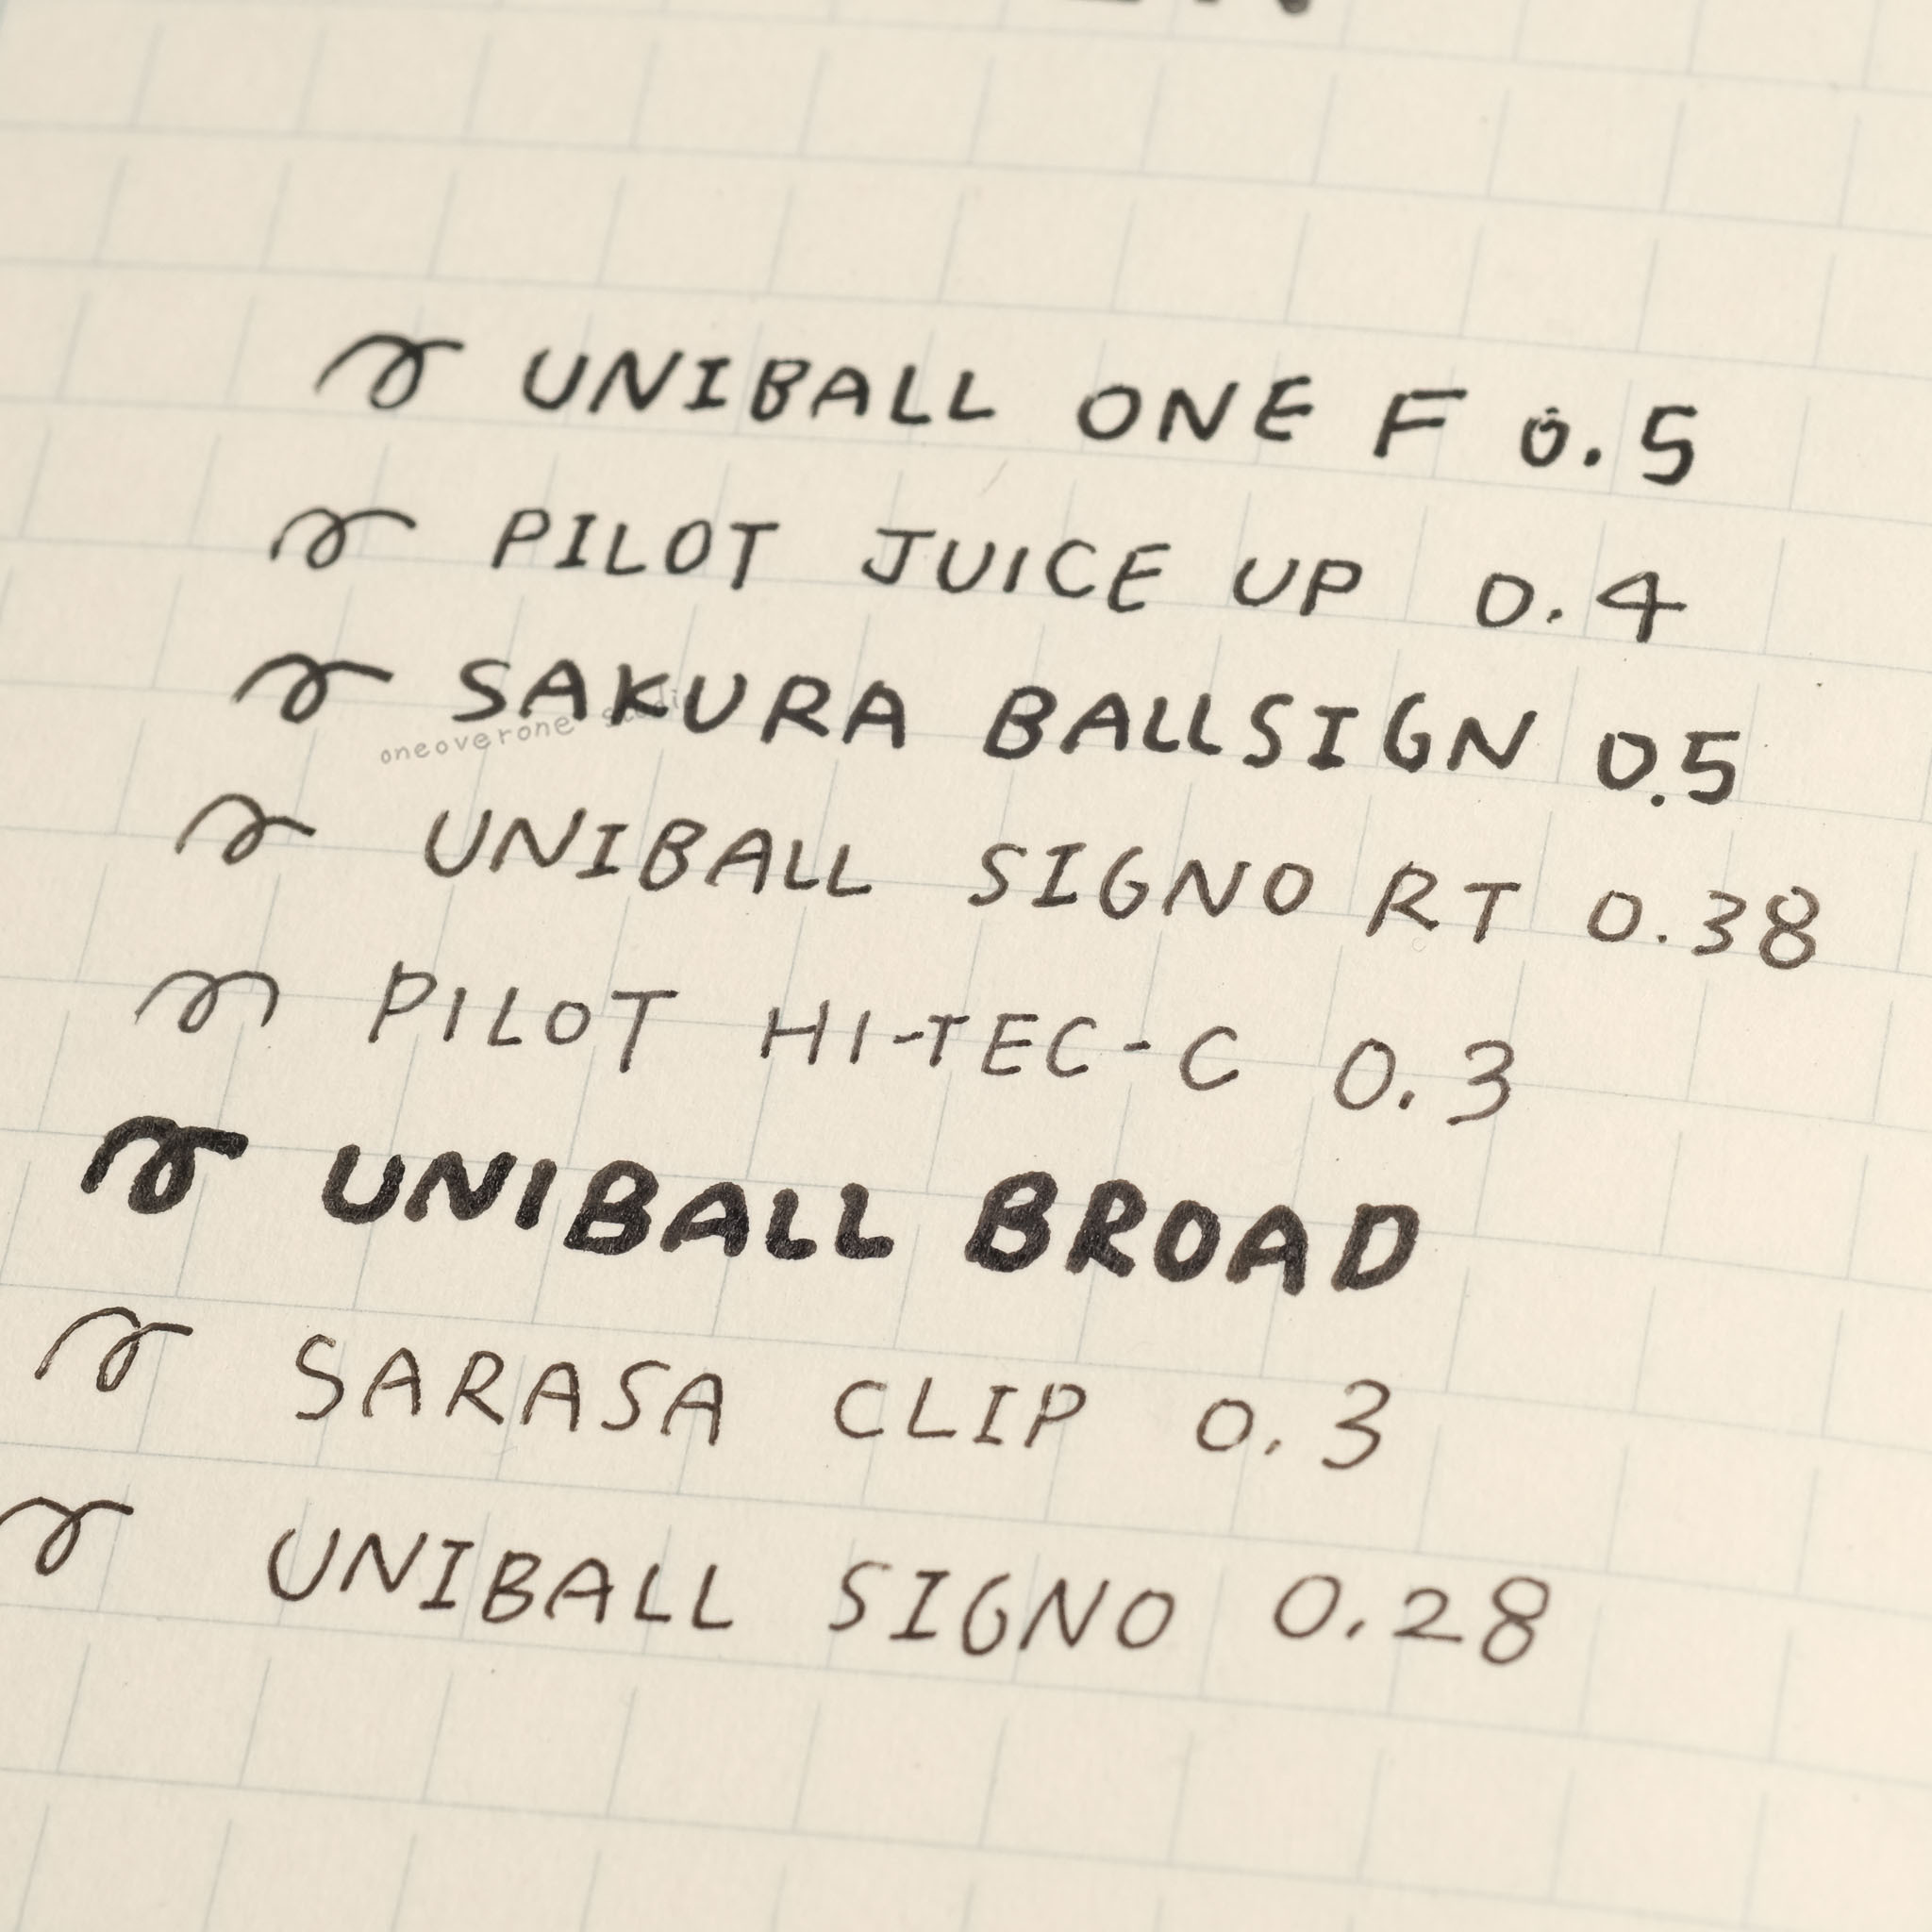 UNIBALL ONE F 0.5
PILOT JUICE UP 0.4
SAKURA BALLSIGN 0.5
oneoverone
UNIBALL SIGNO RT 0.38
PILOT HI-TEC-C 0.3
UNIBALL BROAD
SARASA CLIP 0.3
UNIBALL SIGNO 0.28